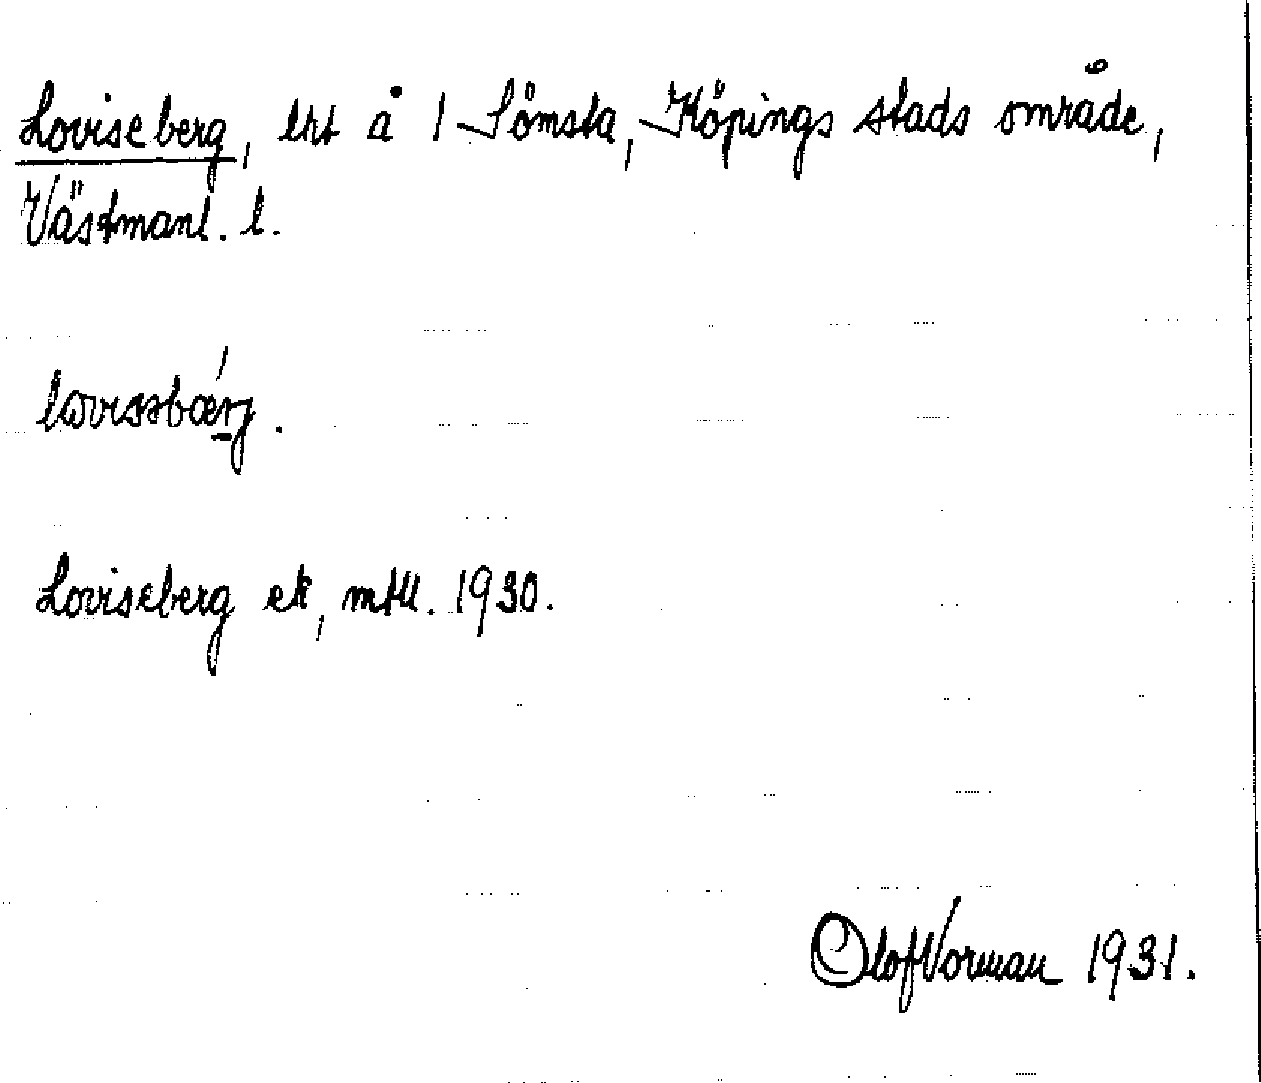 Loviseberg, lht å 1 Sömsta, Köpings stads område,
Västmanl. l.
lovisabærj.
Loviseberg ek, mtll. 1930.
Olof Vorman 1931.